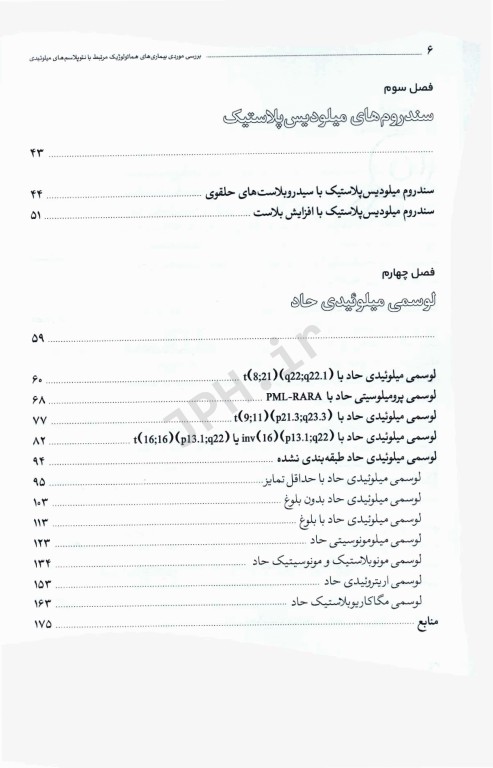 ۶ بررسی موردی بیماری‌های هماتولوژیک مرتبط با نئوپلاسم‌های میلوئیدی
فصل سوم
سندروم‌های میلودیس‌پلاستیک
۴۳
سندروم میلودیس‌پلاستیک با سیدروبلاست‌های حلقوی ۴۴
سندروم میلودیس‌پلاستیک با افزایش بلاست ۵۱
فصل چهارم
لوسمی میلوئیدی حاد
۵۹
لوسمی میلوئیدی حاد با t(8;21)(q22;q22.1) ۶۰
لوسمی پرومیلوسیتی حاد با PML-RARA ۶۸
لوسمی میلوئیدی حاد با t(9;11)(p21.3;q23.3) ۷۷
لوسمی میلوئیدی حاد با inv(16)(p13.1;q22) یا t(16;16)(p13.1;q22) ۸۲
لوسمی میلوئیدی حاد طبقه‌بندی نشده ۹۴
لوسمی میلوئیدی حاد با حداقل تمایز ۹۵
لوسمی میلوئیدی حاد بدون بلوغ ۱۰۳
لوسمی میلوئیدی حاد با بلوغ ۱۱۳
لوسمی میلومونوسیتی حاد ۱۲۳
لوسمی مونوبلاستیک و مونوسیتیک حاد ۱۳۴
لوسمی اریتروئیدی حاد ۱۵۳
لوسمی مگاکاریوبلاستیک حاد ۱۶۳
منابع ۱۷۵
JPH.ir